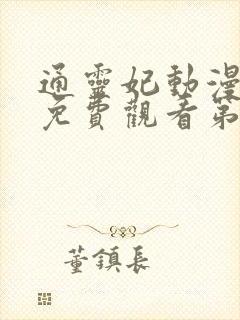 通靈妃動漫
免費觀看第
董鎮長